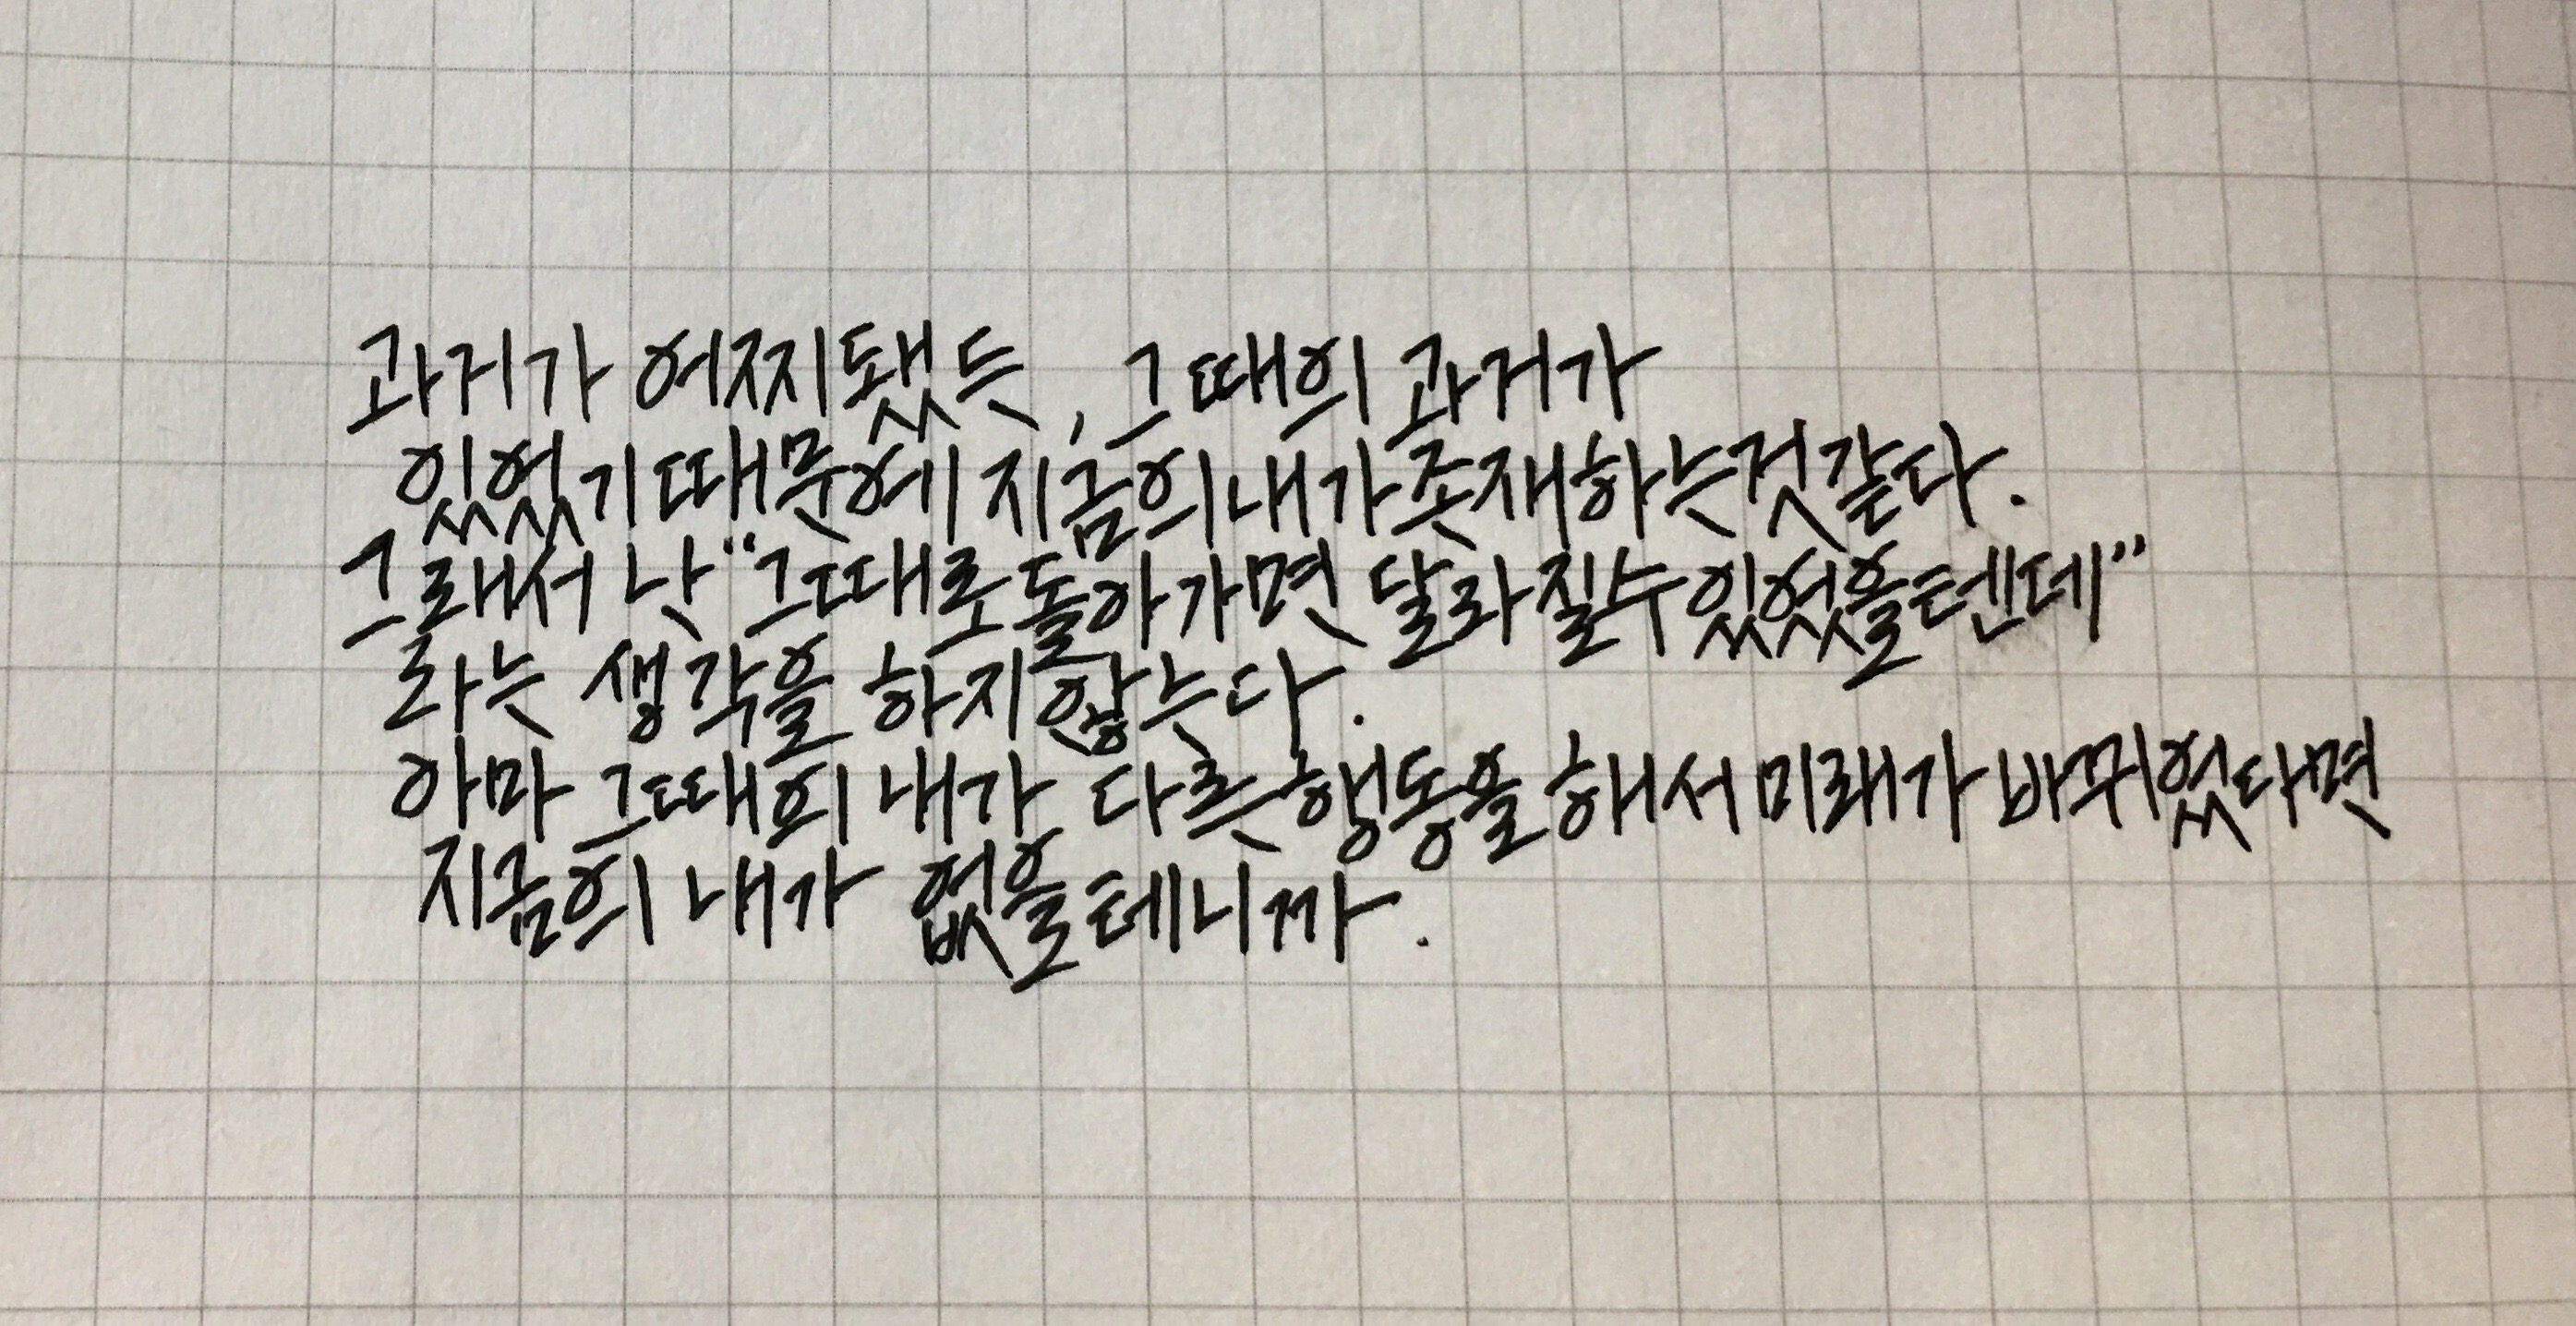 과거가 어찌됐든, 그때의 과거가
있었기때문에 지금의내가존재하는것같다.
그래서 난 "그때로돌아가면 달라질수있었을텐데"
라는 생각을 하지않는다.
아마 그때의 내가 다른행동을해서미래가바뀌었다면
지금의 내가 없을테니까.